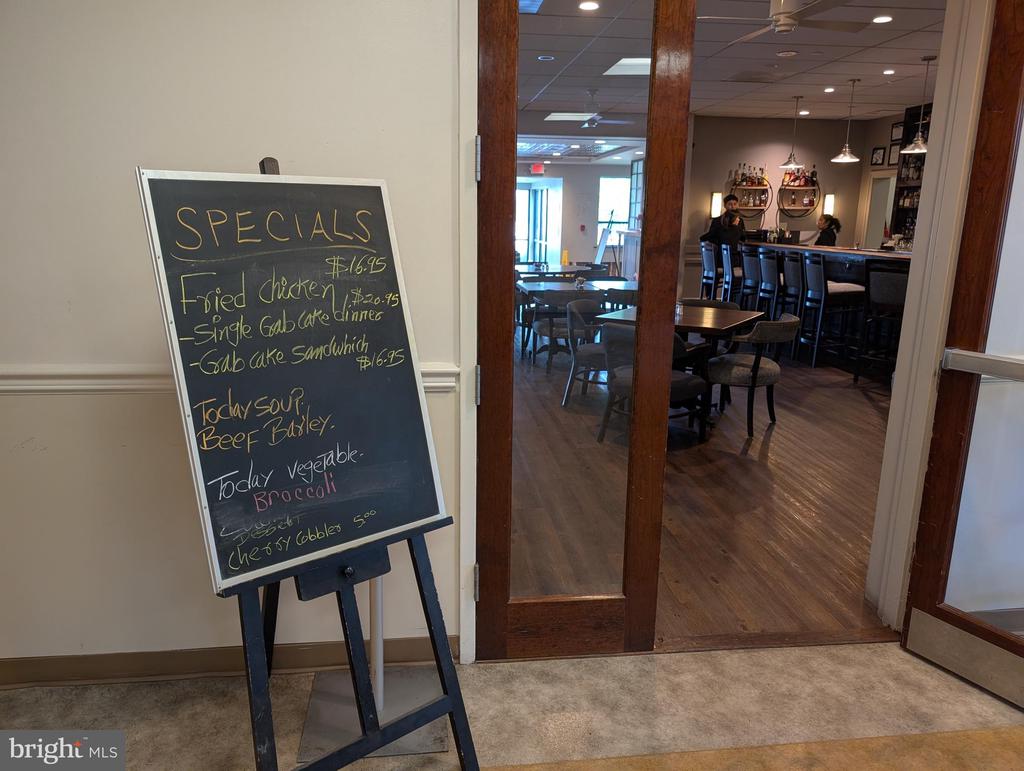 SPECIALS
Fried chicken $16.95
-Single Crab cake dinner $20.95
-Crab cake Sandwhich $16.95
Today soup.
Beef Barley.
Today vegetable.
Broccoli
Dessert
Cherry Cobbler 5.00
bright MLS